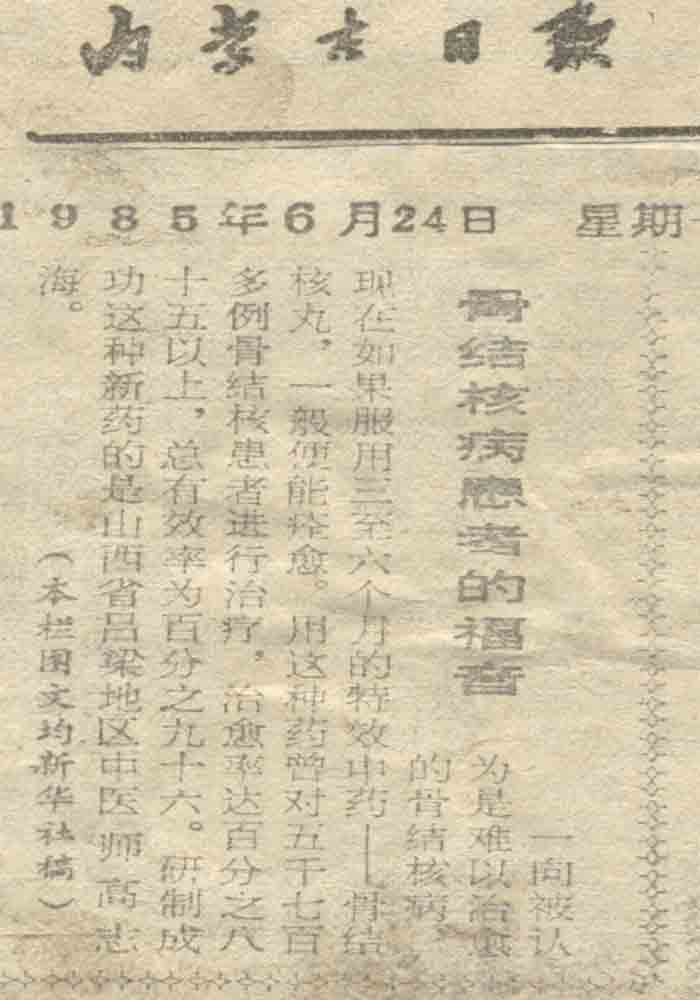 内蒙古日报
1985年6月24日 星期一
骨结核病患者的福音
一向被认
为是难以治愈
的骨结核病，
现在如果服用三至六个月的特效中药——骨结
核丸，一般便能痊愈。用这种药曾对五千七百
多例骨结核患者进行治疗，治愈率达百分之八
十五以上，总有效率为百分之九十六。研制成
功这种新药的是山西省吕梁地区中医师高志
海。
（本栏图文均新华社稿）